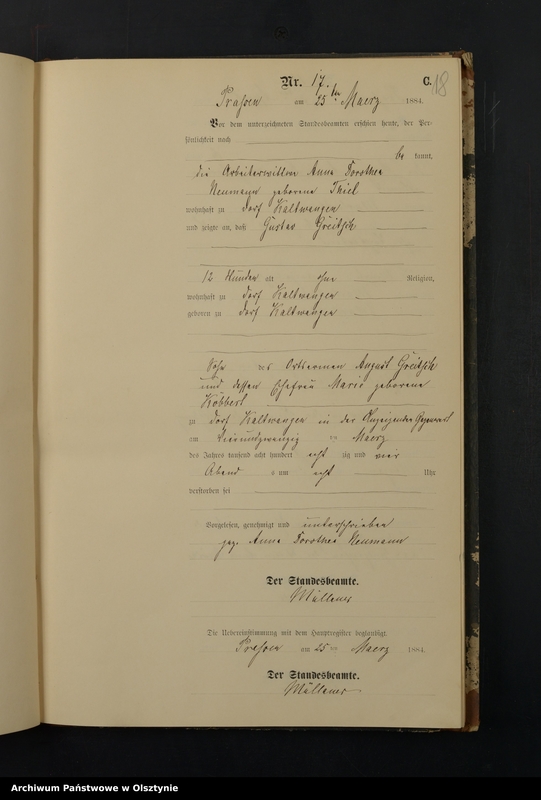 Nr. 17.
C.
18
Prassen am 25ten Maerz 1884.
Vor dem unterzeichneten Standesbeamten erschien heute, der Per-
sönlichkeit nach
be kannt,
die Arbeiterwittwe Anna Dorothea
Neumann geborene Thiel
wohnhaft zu Dorf Kaltwangen
und zeigte an, daß Gustav
12 Stunden alt ohne Religion,
wohnhaft zu Dorf Kaltwangen
geboren zu Dorf Kaltwangen
Sohn des Ortsarmen August
und dessen Ehefrau Marie geborene
Köbbert
zu Dorf Kaltwangen in der Anzeigenden Gegenwart
am vierundzwanzig ten Maerz
des Jahres tausend acht hundert acht zig und vier
Abends um acht Uhr
verstorben sei
Vorgelesen, genehmigt und unterschrieben
gez. Anna Dorothea Neumann
Der Standesbeamte.
Die Uebereinstimmung mit dem Hauptregister beglaubigt.
Prassen am 25 ten Maerz 1884.
Der Standesbeamte.
Archiwum Państwowe w Olsztynie